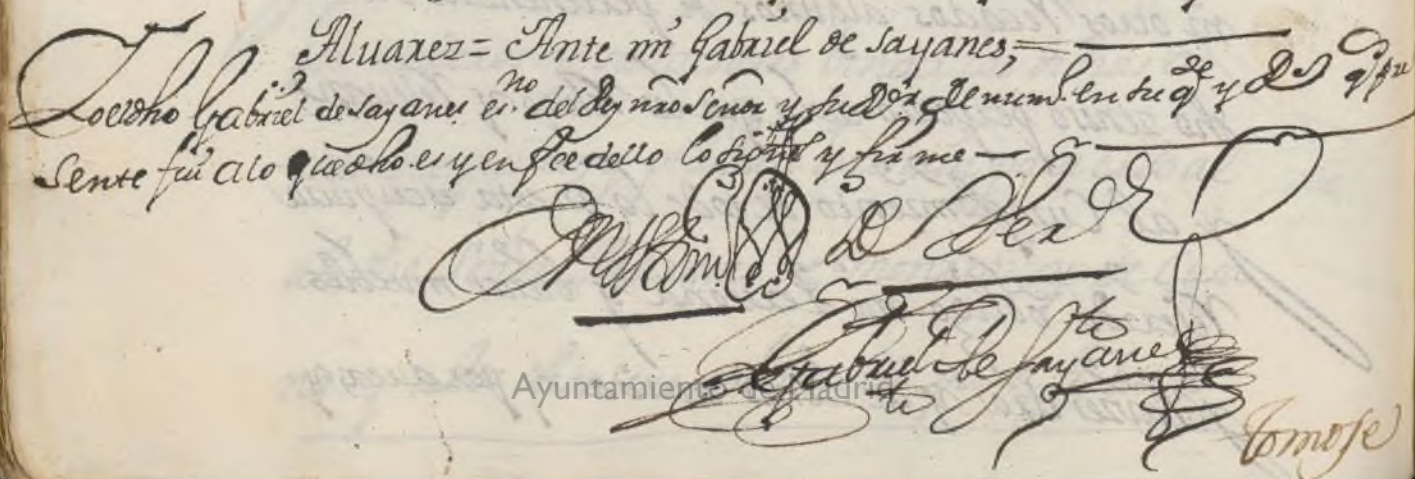 Alvarez = Ante mi Gabriel de Sayanes,
Yo el dho Gabriel de Sayanes es.no del Rey nro Señor y del num.o en su y presente
sente fui a lo que dho es y en fee dello lo signe y firme
En testim.o de Verdad
Gabriel de Sayanes
Ayuntamiento de Madrid
tomose